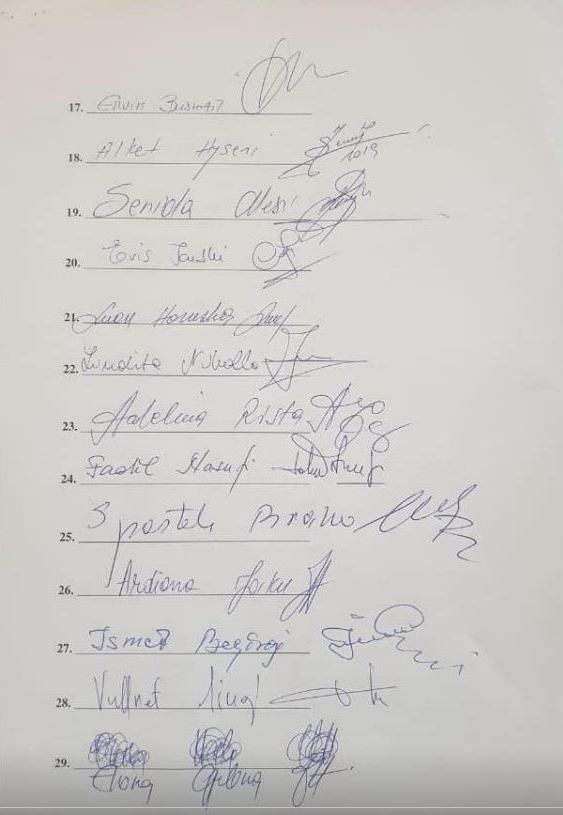 17. Ervin Bushati
18. Alket Hyseni 1019
19. Senida Alesi
20. Evis
21. Luan
22. Lindita Nikolla
23. Adelina Rista
24. Fadil Nasufi
25. Spartak Braho
26. Ardiana Jaku
27. Ismet Beqiraj
28. Vullnet Sinaj
29. Elona Gjebrea